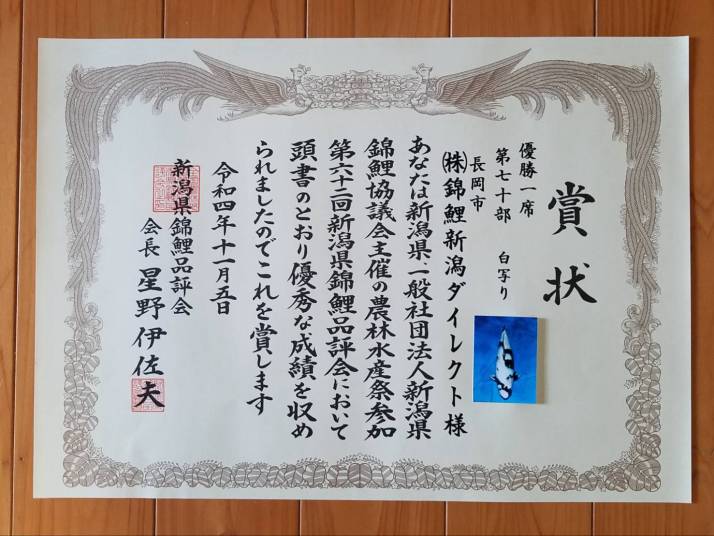 賞状
優勝一席
第七十部　白写り
長岡市
㈱錦鯉新潟ダイレクト様
あなたは新潟県一般社団法人新潟県
錦鯉協議会主催の農林水産祭参加
第六十二回新潟県錦鯉品評会において
頭書のとおり優秀な成績を収め
られましたのでこれを賞します
令和四年十一月五日
新潟県錦鯉品評会
会長　星野伊佐夫